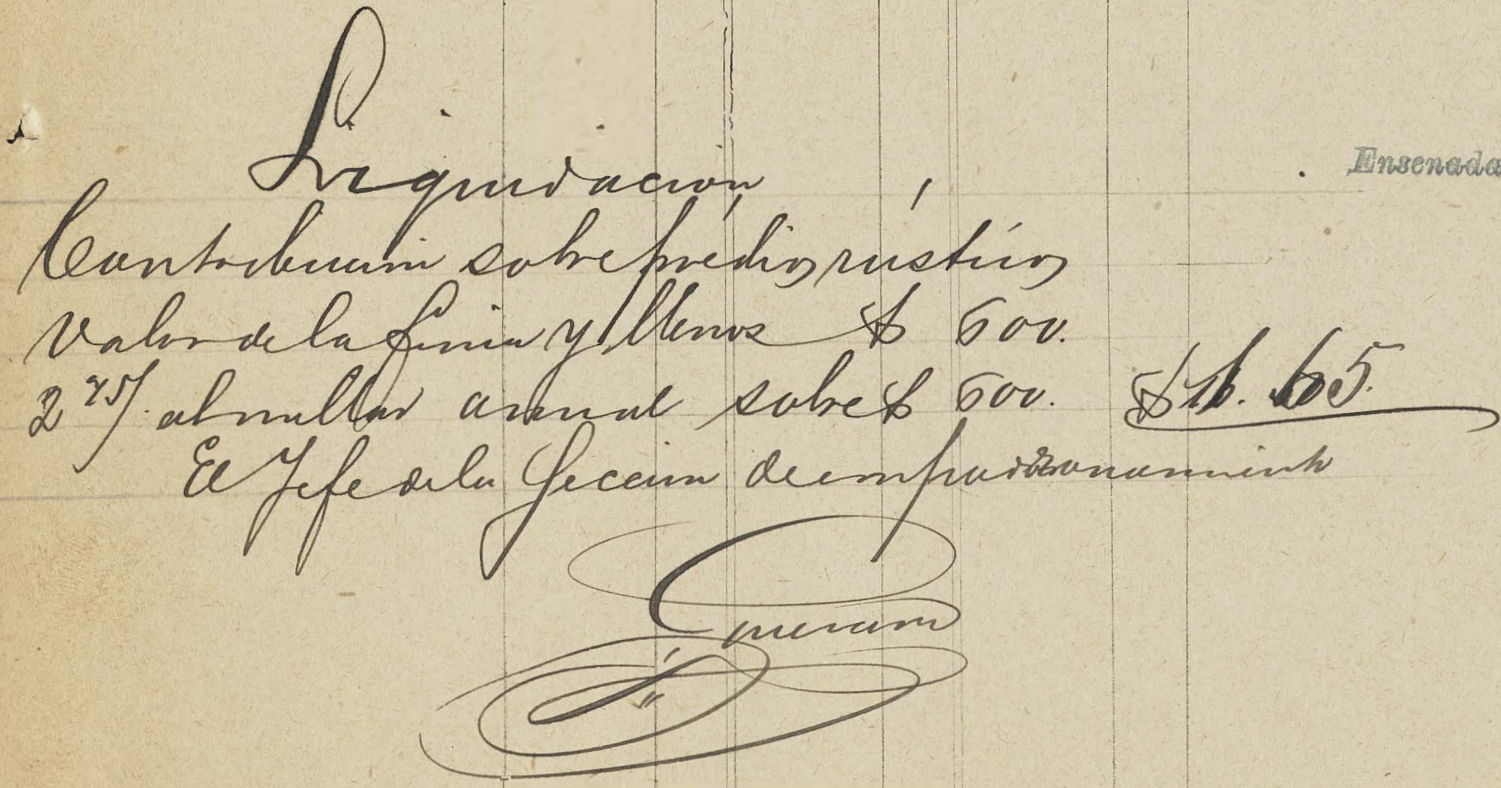 Liquidación
Ensenada
Contribución sobre prédios rústicos
Valor de la finca y llenos $ 600.
2 75/. al millar anual sobre $ 600. $ 1. 65.
El Jefe de la Sección de empadronamiento